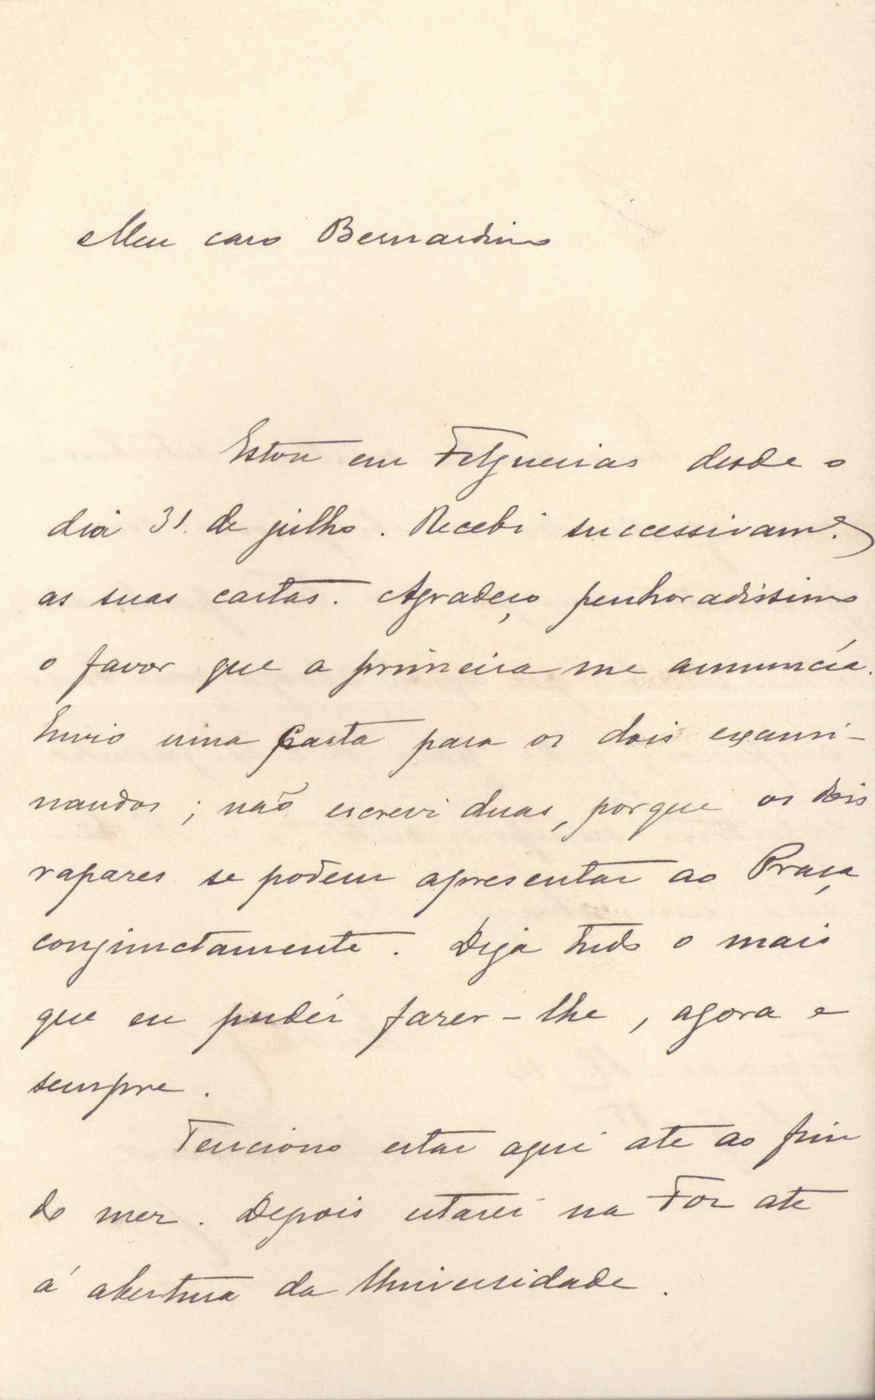 Meu caro Bernardino
Estou em Felgueiras desde o
dia 31 de julho. Recebi successivam.e
as suas cartas. Agradeço penhoradissimo
o favor que a primeira me annuncía.
Envio uma carta para os dois exami-
nandos; não escrevi duas, porque os dois
rapazes se podem apresentar ao Praça
conjunctamente. Diga tudo o mais
que eu pudér fazer-lhe, agora e
sempre.
Tenciono estar aqui até ao fim
do mez. Depois estarei na Foz até
á abertura da Universidade.